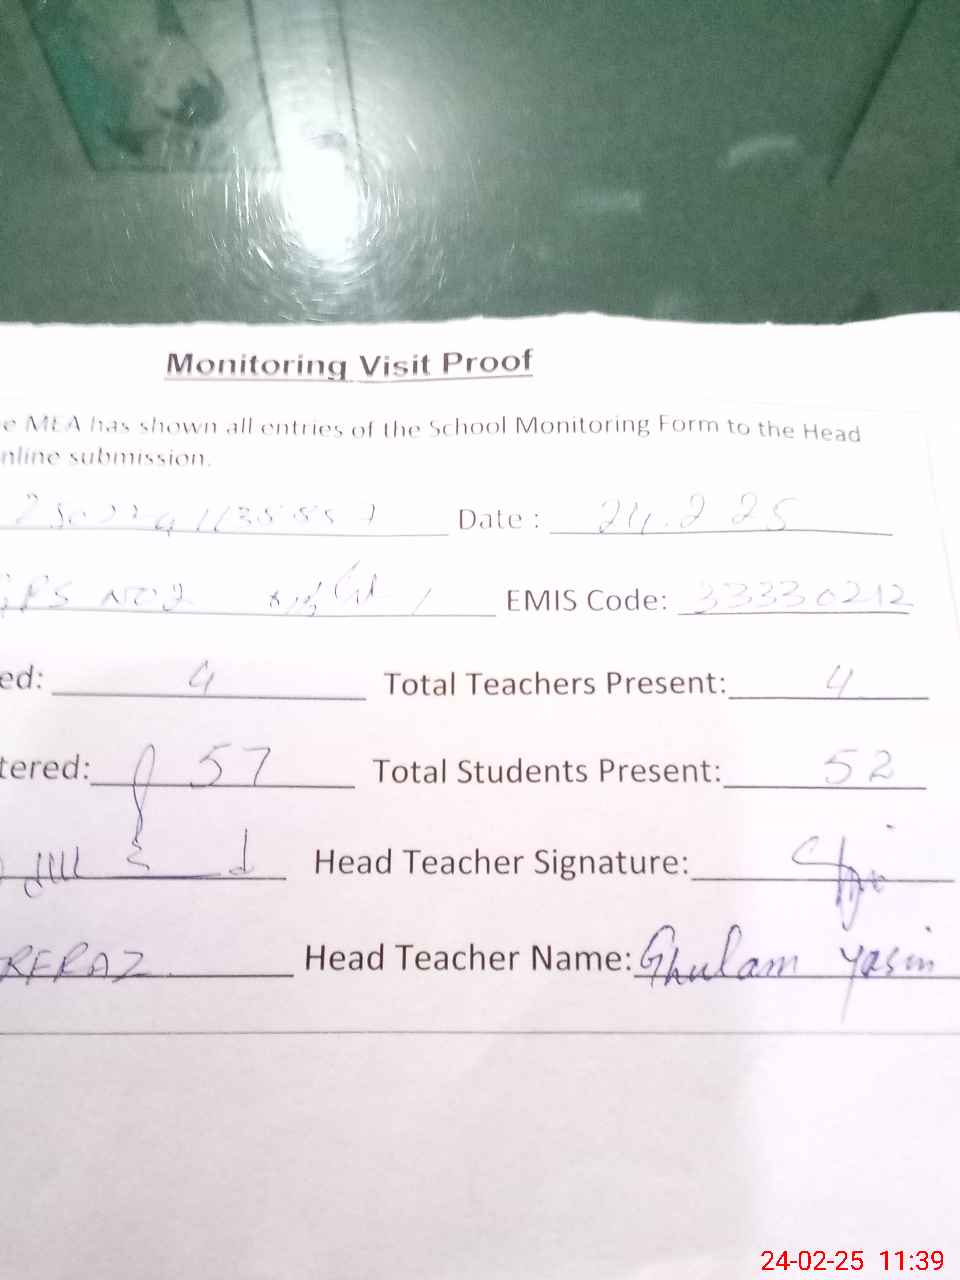 Monitoring Visit Proof
e MEA has shown all entries of the School Monitoring Form to the Head
nline submission.
Date : 24.2.25
GPS NO 2 EMIS Code: 33330212
ed: 4 Total Teachers Present: 4
tered: 57 Total Students Present: 52
Head Teacher Signature:
Head Teacher Name: Ghulam Yasin
24-02-25 11:39